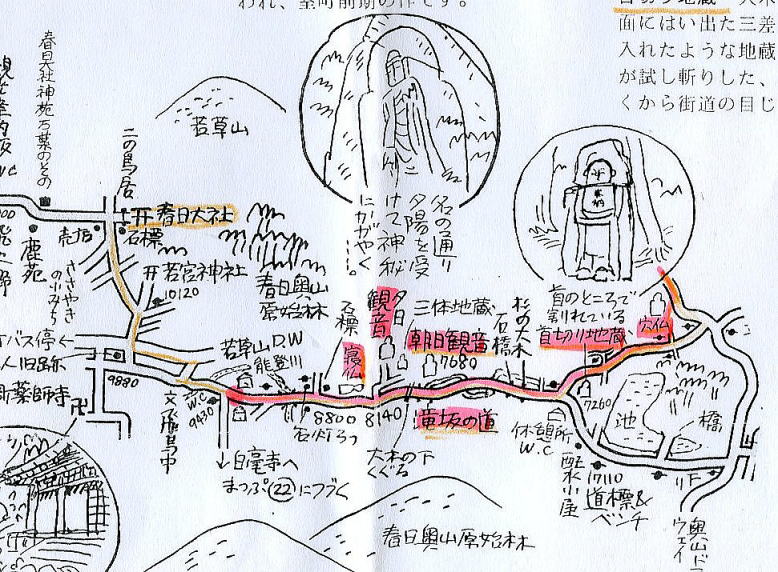 われ、室町前期の作です。
面にはい出た三差
入れたような地蔵
が試し斬りした、
くから街道の目じ
春日大社神苑万葉のその
二の鳥居
若草山
春日大社
石標
売店
鹿苑
ささやき
の小みち
若宮神社
10120
春日奥山
原始林
名の通り
夕陽を受
けて神秘
にかがやく
…。
首のところで
割れている
首切り地蔵
穴仏
夕日
観音
三体地蔵
朝日観音
7680
杉の大木
石橋
石標
寝仏
若草山D.W
能登川
バス停←
新薬師寺
9880
W.C
9430
8800
石灯ろう
8140
滝坂の道
大木の下
くぐる
↓白毫寺へ
まっぷ㉒につづく
休憩所
W.C
7260
池
7110
道標&
ベンチ
奥山ド
ウェイ
春日奥山原始林